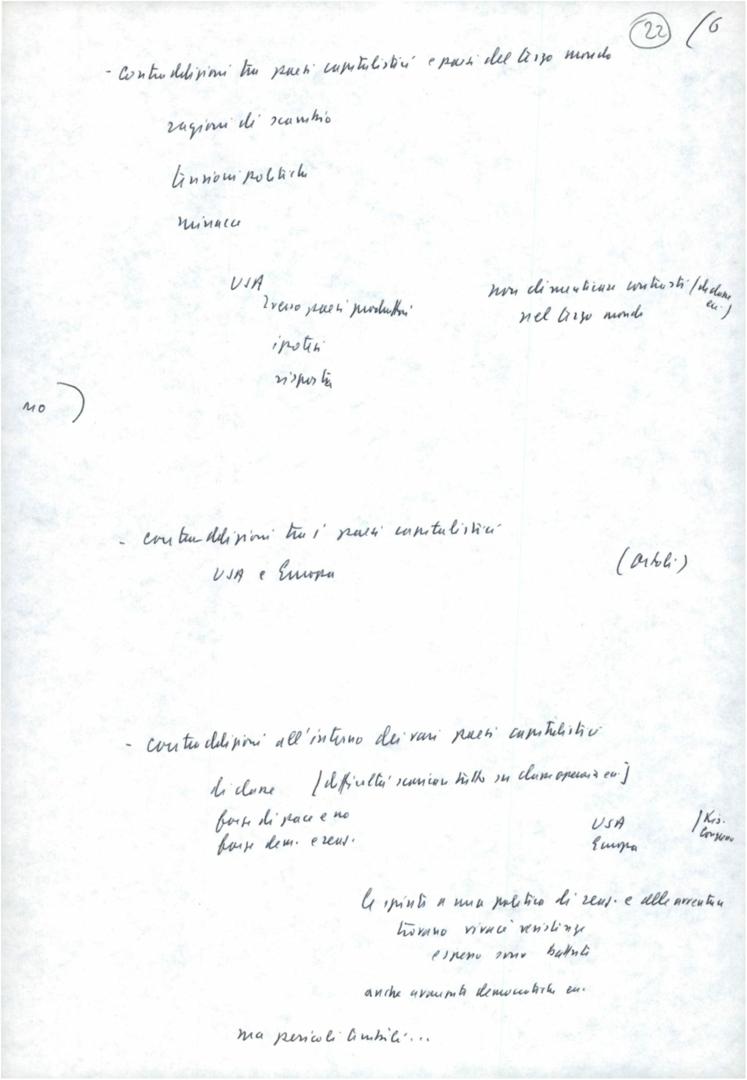 22 / 6
- contraddizioni tra paesi capitalistici e paesi del terzo mondo
ragioni di scambio
tensioni politiche
minacce
USA
verso paesi produttori
non dimenticare contrasti (di classe ecc.)
nel terzo mondo
ipotesi
risposta
no )
- contraddizioni tra i paesi capitalistici
USA e Europa
(Ortoli)
- contraddizioni all'interno dei vari paesi capitalistici
di classe [difficoltà scaricare tutto su classe operaia ecc.]
forze di pace e no
forze dem. e reaz.
USA
Europa
le spinte a una politica di reaz. e alle avventure
trovano vivaci resistenze
e spesso sono battute
anche avanzate democratiche ecc.
ma pericoli terribili...